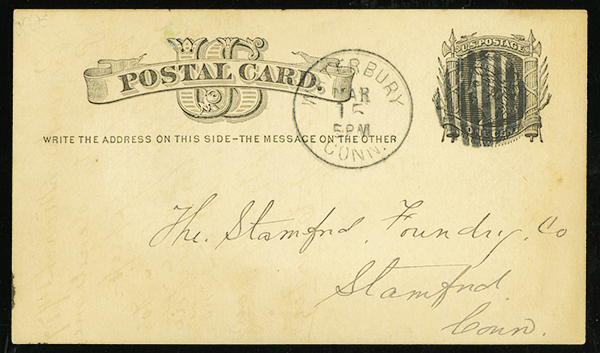 US
POSTAL CARD.
WRITE THE ADDRESS ON THIS SIDE-THE MESSAGE ON THE OTHER
WATERBURY
MAR
15
5PM
CONN.
U.S. POSTAGE
ONE CENT
The. Stamford, Foundry, Co
Stamford.
Conn.